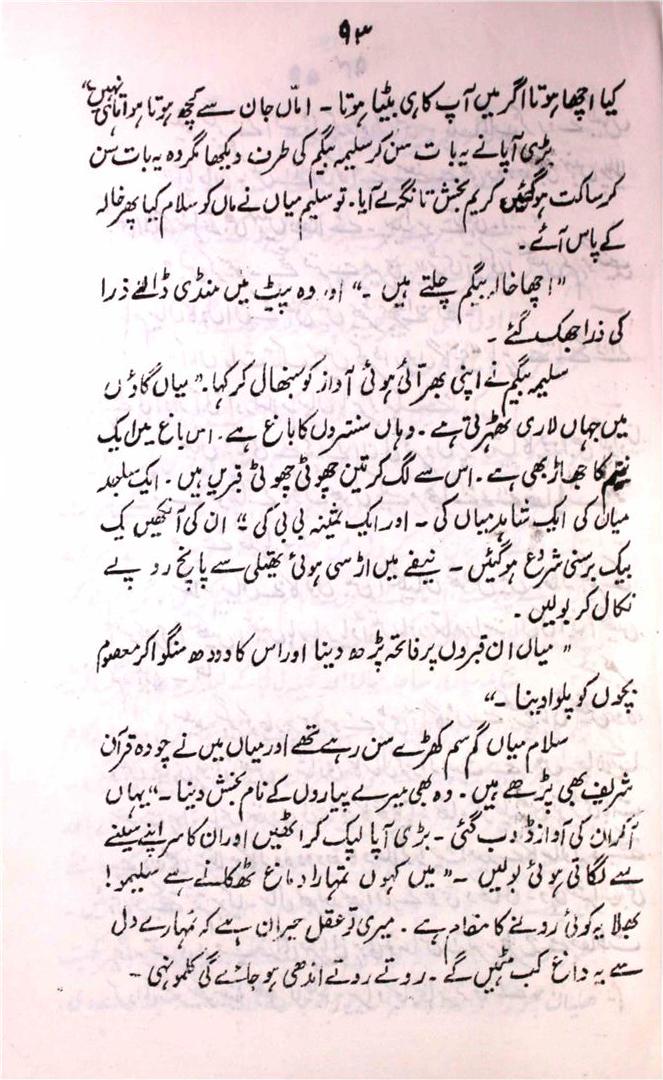 ۹۳
کیا اچھا ہوتا اگر میں آپ کا ہی بیٹا ہوتا ۔ اماں جان سے کچھ ہوتا ہواتا ہی نہیں“
بڑی آپا نے یہ بات سن کر سلیمہ بیگم کی طرف دیکھا مگر وہ یہ بات سن
کر ساکت ہو گئیں کریم بخش تانگہ لے آیا ۔ تو سلیم میاں نے ماں کو سلام کیا پھر خالہ
کے پاس آئے ۔
”اچھا خالہ بیگم چلتے ہیں ۔“ اور وہ پیٹ میں منڈی ڈالنے ذرا
کی ذرا جھک گئے ۔
سلیمہ بیگم نے اپنی بھر آئی ہوئی آواز کو سنبھال کر کہا ۔ ”میاں گاؤں
میں جہاں لاری ٹھہرتی ہے ۔ وہاں سنتروں کا باغ ہے ۔ اس باغ میں ایک
نیم کا جھاڑ بھی ہے ۔ اس سے لگ کر تین چھوٹی چھوٹی قبریں ہیں ۔ ایک ساجد
میاں کی ایک شاہد میاں کی ۔ اور ایک ثمینہ بی بی کی “ ان کی آنکھیں یک
بیک برسنی شروع ہو گئیں ۔ نیفے میں اڑسی ہوئی تھیلی سے پانچ روپے
نکال کر بولیں ۔
” میاں ان قبروں پر فاتحہ پڑھ دینا اور اس کا دودھ منگوا کر معصوم
بچوں کو پلوا دینا ۔“
سلام میاں گم سم کھڑے سن رہے تھے اور میاں میں نے چودہ قرآن
شریف بھی پڑھے ہیں ۔ وہ بھی میرے پیاروں کے نام بخش دینا ۔“ یہاں
آ کر ان کی آواز ڈوب گئی ۔ بڑی آپا لپک کر اٹھیں اور ان کا سر اپنے سینے
سے لگاتی ہوئی بولیں ۔ ” میں کہوں تمہارا دماغ ٹھکانے سے سلیمو !
بھلا یہ کوئی رونے کا مقام ہے ۔ میری تو عقل حیران ہے کہ تمہارے دل
سے یہ داغ کب مٹیں گے ۔ روتے روتے اندھی ہو جائے گی کلموئی ۔